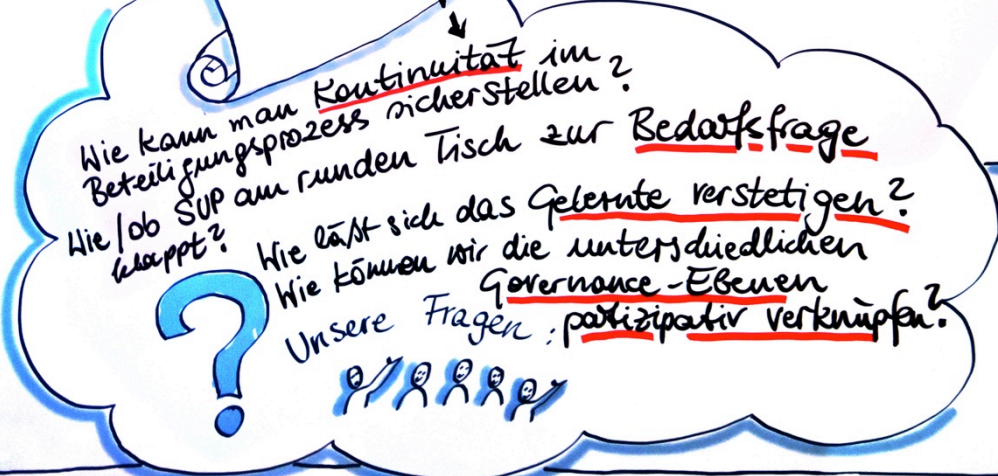 Wie kann man Kontinuität im
Beteiligungsprozess sicherstellen?
Wie/ob SUP am runden Tisch zur Bedarfsfrage
klappt?
Wie läßt sich das Gelernte verstetigen?
Wie können wir die unterschiedlichen
Governance-Ebenen
Unsere Fragen: partizipativ verknüpfen?